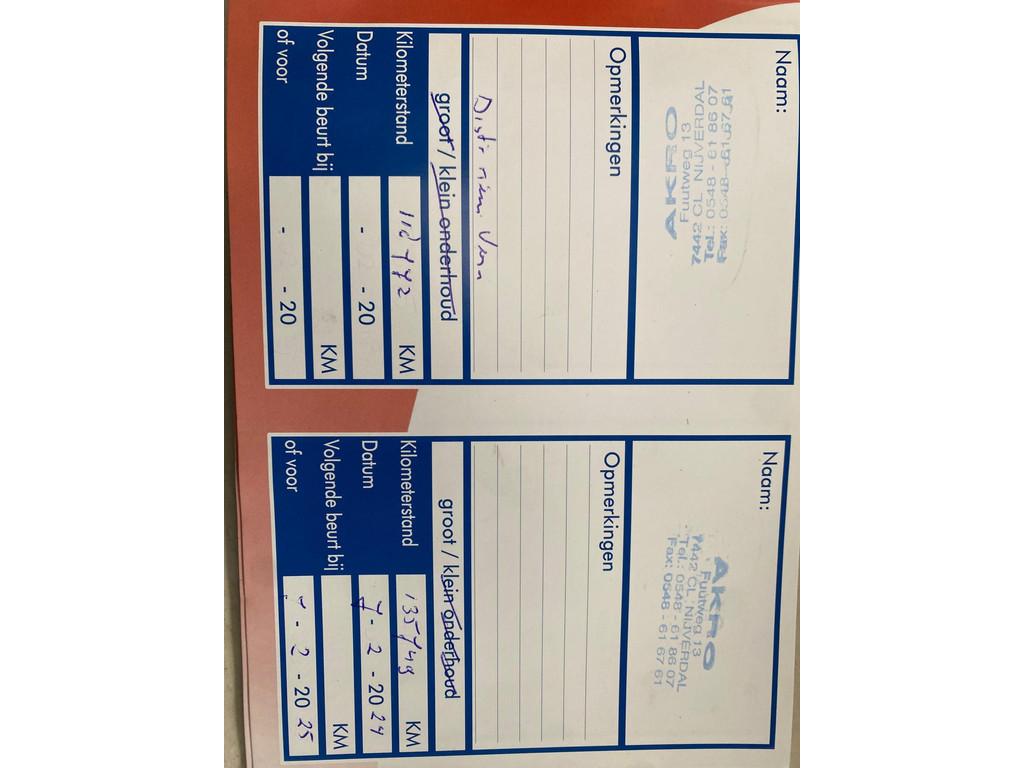 Naam:
AKRO
Fuutweg 13
7442 CL NIJVERDAL
Tel.: 0548 - 61 86 07
Fax: 0548 - 61 67 61
Opmerkingen
groot / klein onderhoud
Kilometerstand KM
Datum - - 20
Volgende beurt bij KM
of voor - - 20
Naam:
AKRO
Fuutweg 13
7442 CL NIJVERDAL
Tel.: 0548 - 61 86 07
Fax: 0548 - 61 67 61
Opmerkingen
groot / klein onderhoud
Kilometerstand 135749 KM
Datum 7 - 2 - 2024
Volgende beurt bij KM
of voor 7 - 2 - 2025